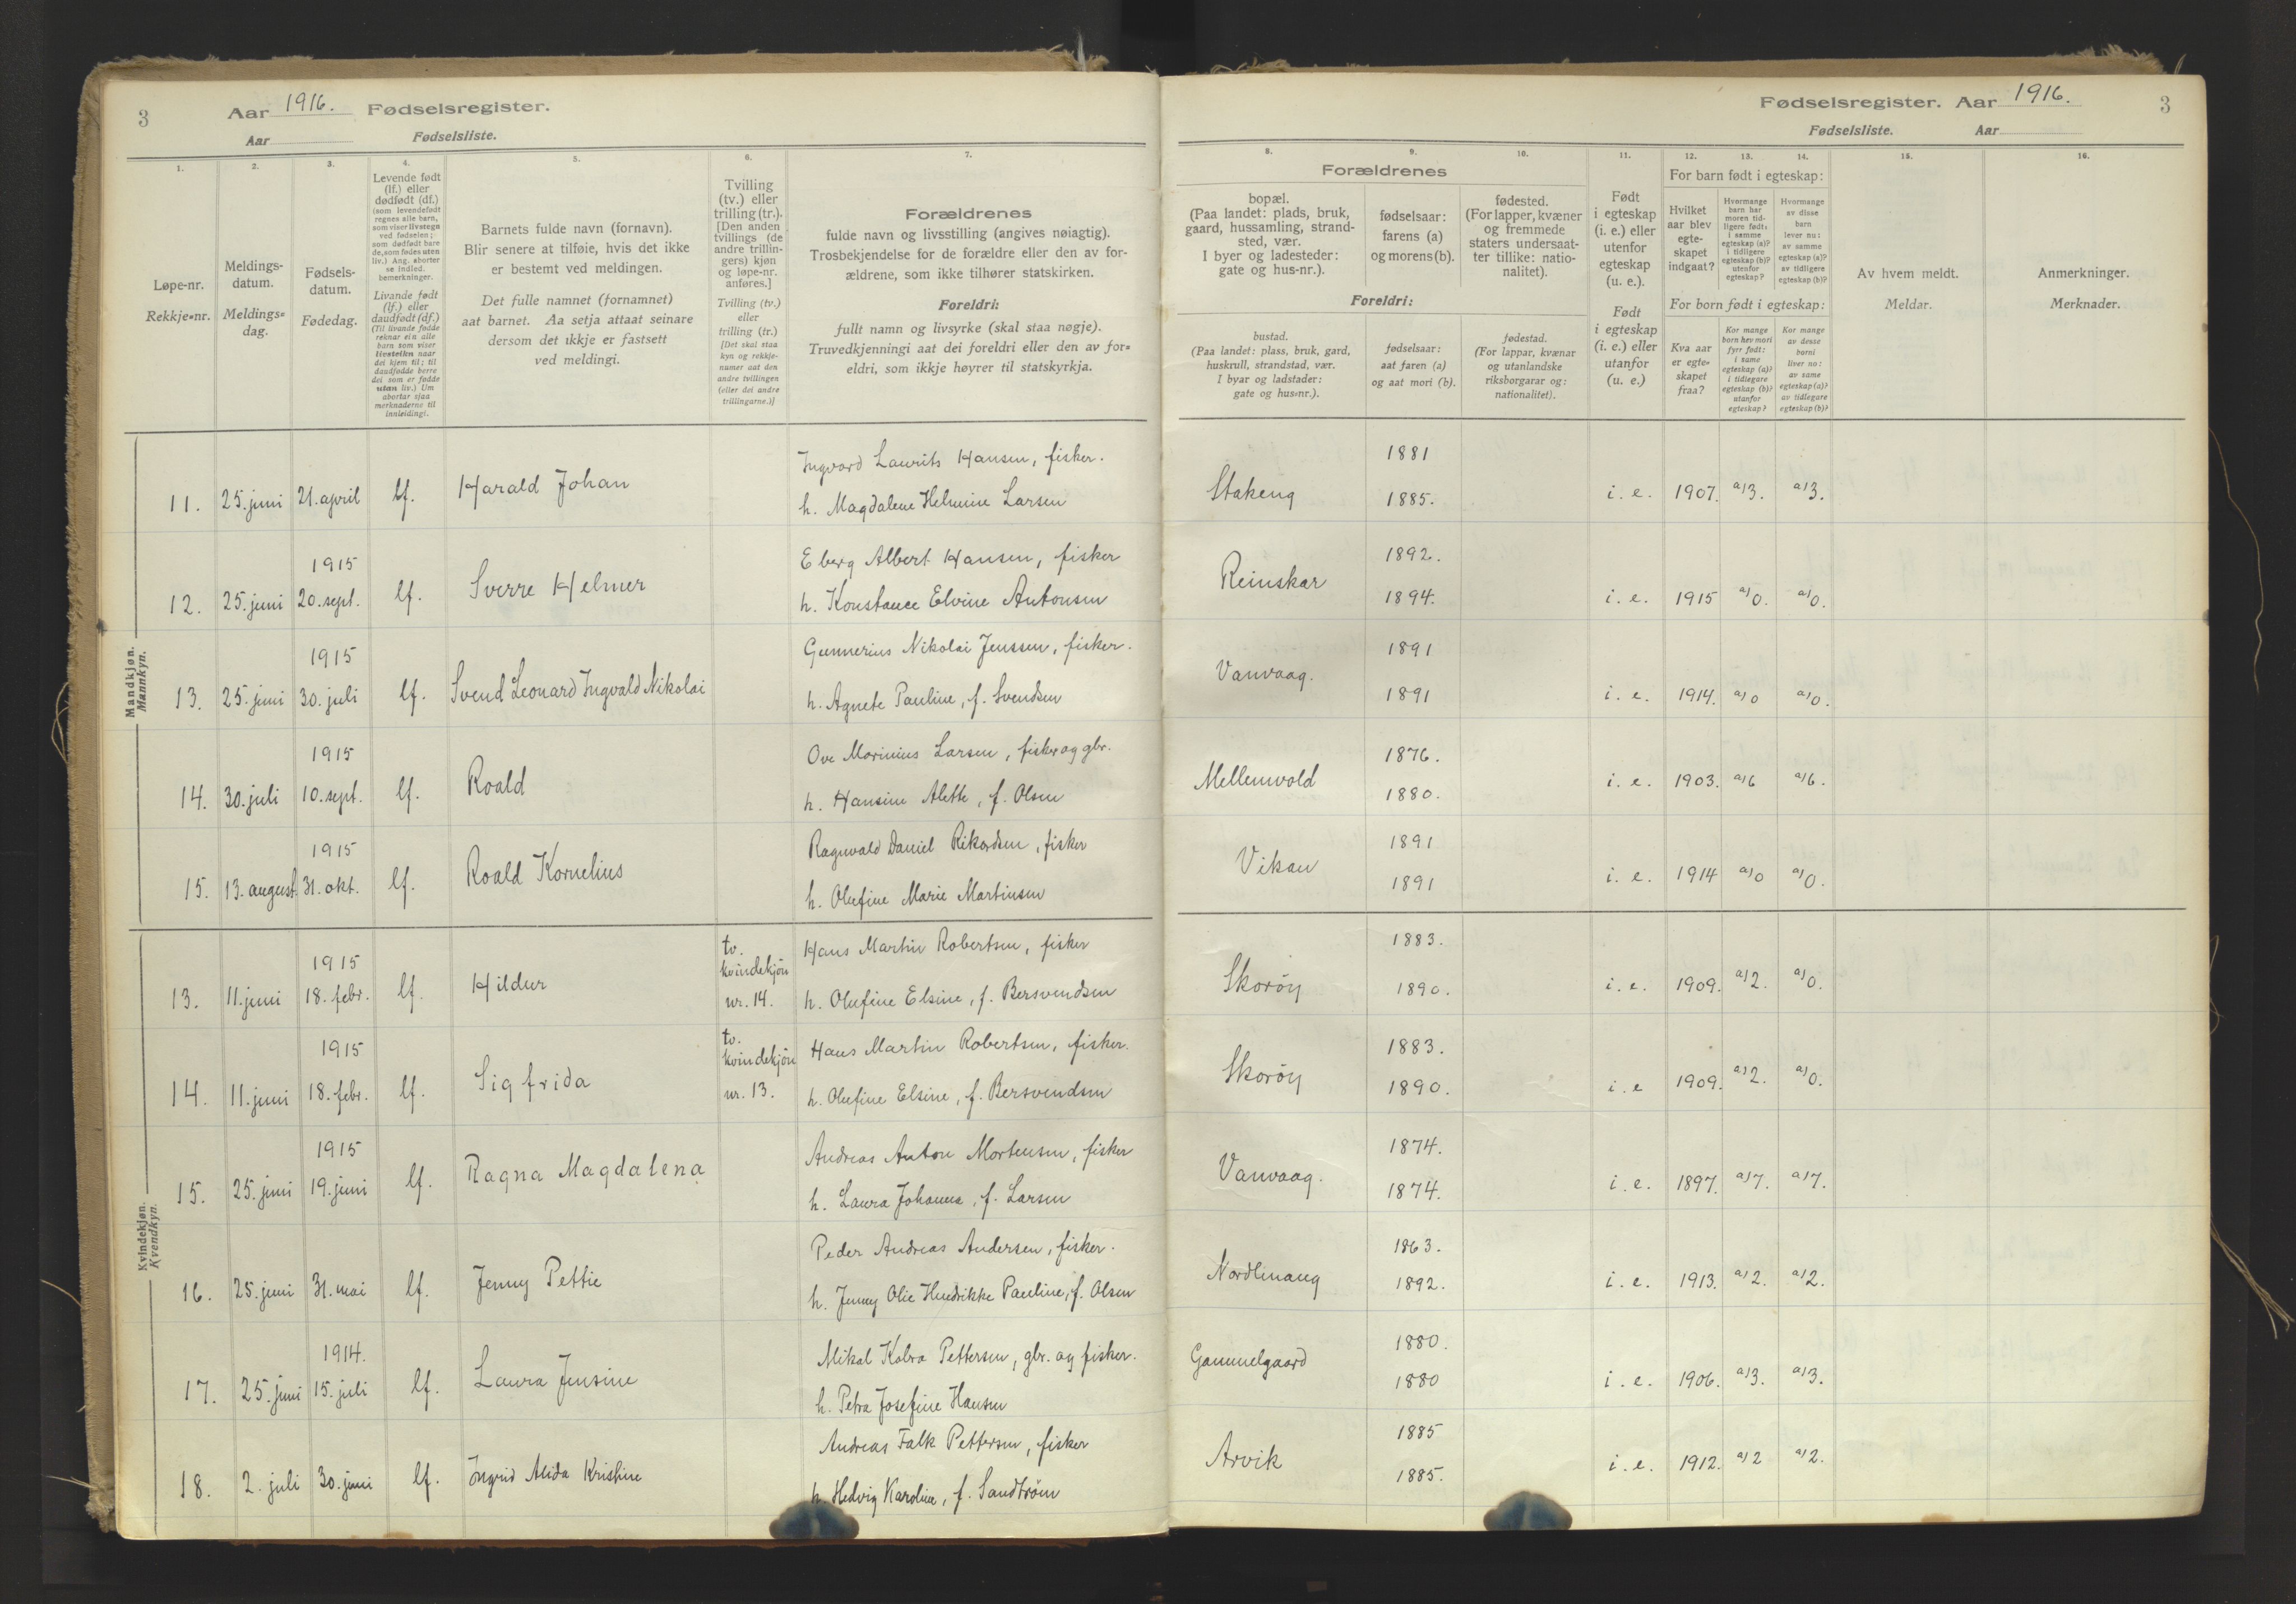 3
Aar 1916. Fødselsregister.
Aar Fødselsliste.
Fødselsregister. Aar 1916.
3
Fødselsliste. Aar
1.
Løpe-nr.
Rekkje-nr.
2.
Meldings-
datum.
Meldings-
dag.
3.
Fødsels-
datum.
Fødedag.
4.
Levende født
(lf.) eller
dødfødt (df.)
(som levendefødt
regnes alle barn,
som viser livstegn
ved fødselen;
som dødfødt bare
de, som fødes uten
liv.) Ang. aborter
se indled.
bemerkninger.
Livande født
(lf.) eller
daudfødt (df.)
(Til livande fødde
reknar ein alle
born som viser
livsteikn naar
dei kjem til; til
daudfødde berre
dei som er fødde
utan liv.) Um
abortar sjaa
merknaderne til
innleidingi.
5.
Barnets fulde navn (fornavn).
Blir senere at tilføie, hvis det ikke
er bestemt ved meldingen.
Det fulle namnet (fornamnet)
aat barnet. Aa setja attaat seinare
dersom det ikkje er fastsett
ved meldingi.
6.
Tvilling
(tv.) eller
trilling (tr.).
[Den anden
tvillings (de
andre trillin-
gers) kjøn
og løpe-nr.
anføres.]
Tvilling (tv.)
eller
trilling (tr.)
[Det skal staa
kyn og rekkje-
numer aat den
andre tvillingen
(eller dei andre
trillingarne.)]
7.
Forældrenes
fulde navn og livsstilling (angives nøiagtig).
Trosbekjendelse for de forældre eller den av for-
ældrene, som ikke tilhører statskirken.
Foreldri:
fullt namn og livsyrke (skal staa nøgje).
Truvedkjenningi aat dei foreldri eller den av for-
eldri, som ikkje høyrer til statskyrkja.
8. 9. 10.
Forældrenes
bopæl.
(Paa landet: plads, bruk,
gaard, hussamling, strand-
sted, vær.
I byer og ladesteder:
gate og hus-nr.).
fødselsaar:
farens (a)
og morens (b).
fødested.
(For lapper, kvæner
og fremmede
staters undersaat-
ter tillike: natio-
nalitet).
Foreldri:
bustad.
(Paa landet: plass, bruk, gard,
huskrull, strandstad, vær.
I byar og ladstader:
gate og hus-nr.).
fødselsaar:
aat faren (a)
og aat mori (b).
fødestad.
(For lappar, kvænar
og utanlandske
riksborgarar og:
nationalitet).
11.
Født
i egteskap
(i. e.) eller
utenfor
egteskap
(u. e.).
Født
i egteskap
(i. e.) eller
utanfor
(u. e.)
12. 13. 14.
For barn født i egteskap:
Hvilket
aar blev
egte-
skapet
indgaat?
Hvormange
barn har
moren tid-
ligere født:
i samme
egteskap (a)?
i tidligere
egteskap (b)?
utenfor
egteskap?
Hvormange
av disse
barn
lever nu:
av samme
egteskap (a)?
av tidligere
egteskap (b)?
For born født i egteskap:
Kva aar
er egte-
skapet
fraa?
Kor mange
born hev mori
fyrr født:
i same
egteskap (a)?
i tidlegare
egteskap (b)?
utanfor
egteskap?
Kor mange
av desse
borni
liver no:
av same
egteskap (a)?
av tidlegare
egteskap (b)?
15.
Av hvem meldt.
Meldar.
16.
Anmerkninger.
Merknader.
Mandkjøn.
Mannkyn.
Ingvard Laurits Hansen, fisker. 1881
11. 25. juni 21. april lf. Harald Johan h. Magdalene Helmine Larsen Stakeng 1885. i. e. 1907. a)3. a)3.
1915 Eberg Albert Hansen, fisker 1892.
12. 25. juni 20. sept. lf. Sverre Helmer h. Konstance Elvine Antonsen Reinskar 1894. i. e. 1915 a)0. a)0.
1915 Gunnerius Nikolai Jenssen, fisker. 1891
13. 25. juni 30. juli lf. Svend Leonard Ingvald Nikolai h. Agnete Pauline, f. Svendsen Vanvaag. 1891 i. e. 1914. a)0 a)0.
1915 Ove Marinius Larsen, fisker og gbr. 1876.
14. 30. juli 10. sept. lf. Roald h. Hansine Alette, f. Olsen Mellemvold 1880. i. e. 1903. a)6 a)6.
1915 Ragnvald Daniel Rikardsen, fisker 1891
15. 13. august 31. okt. lf. Roald Kornelius h. Olufine Marie Martinsen Vikan 1891 i. e. 1914 a)0 a)0.
Kvindekjøn.
Kvendkyn.
1915 tv. kvindekjøn Hans Martin Robertsen, fisker 1883.
13. 11. juni 18. febr. lf. Hildur nr. 14. h. Olufine Elsine, f. Bersvendsen Skorøy 1890. i. e. 1909. a)2. a)0.
1915 tv. kvindekjøn Hans Martin Robertsen, fisker. 1883.
14. 11. juni 18. febr. lf. Sigfrida nr. 13. h. Olufine Elsine, f. Bersvendsen Skorøy 1890. i. e 1909. a)2. a)0.
1915 Andreas Anton Mortensen, fisker 1874.
15. 25. juni 19. juni lf. Ragna Magdalena h. Laura Johanna, f. Larsen Vanvaag. 1874. i. e. 1897. a)7. a)7.
Peder Andreas Andersen, fisker. 1863.
16. 25. juni 31. mai lf. Jenny Pettie h. Jenny Olie Hendrikke Pauline, f. Olsen Nordlmang 1892. i. e. 1913. a)2. a)2.
1914. Mikal Kobro Pettersen, gbr. og fisker. 1880.
17. 25. juni 15. juli lf. Laura Jensine h. Petra Josefine Hansen Gammelgaard 1880 i. e. 1906. a)3. a)3.
Andreas Falk Pettersen, fisker 1885
18. 2. juli 30. juni lf. Ingrid Alida Kristine h. Hedvig Karoline, f. Sandtrøm Arvik 1885. i. e. 1912. a)2 a)2.